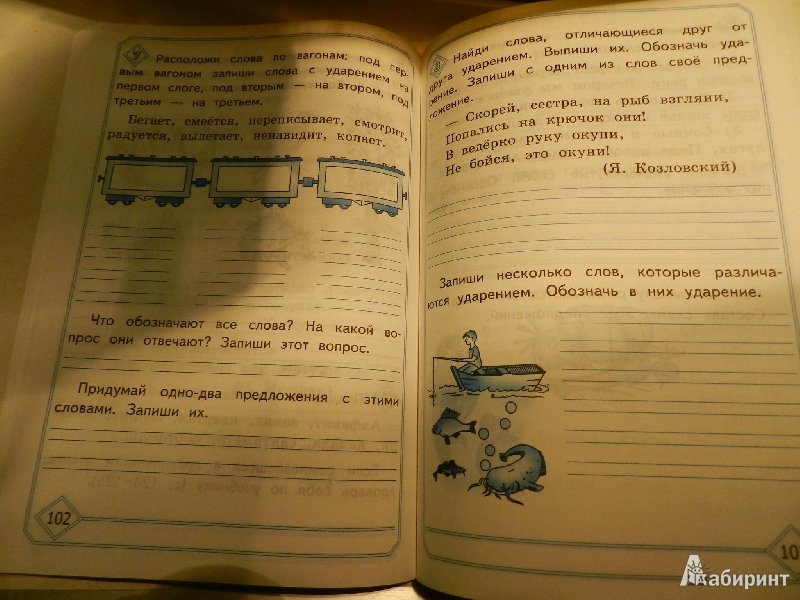 7 Расположи слова по вагонам: под пер-
вым вагоном запиши слова с ударением на
первом слоге, под вторым — на втором, под
третьим — на третьем.
Бегает, смеётся, переписывает, смотрит,
радуется, вылетает, ненавидит, колет.
Что обозначают все слова? На какой во-
прос они отвечают? Запиши этот вопрос.
Придумай одно-два предложения с этими
словами. Запиши их.
102
8 Найди слова, отличающиеся друг от
друга ударением. Выпиши их. Обозначь уда-
рение. Запиши с одним из слов своё пред-
ложение.
— Скорей, сестра, на рыб взгляни,
Попались на крючок они!
В ведёрко руку окуни,
Не бойся, это окуни!
(Я. Козловский)
Запиши несколько слов, которые различа-
ются ударением. Обозначь в них ударение.
10
Лабиринт